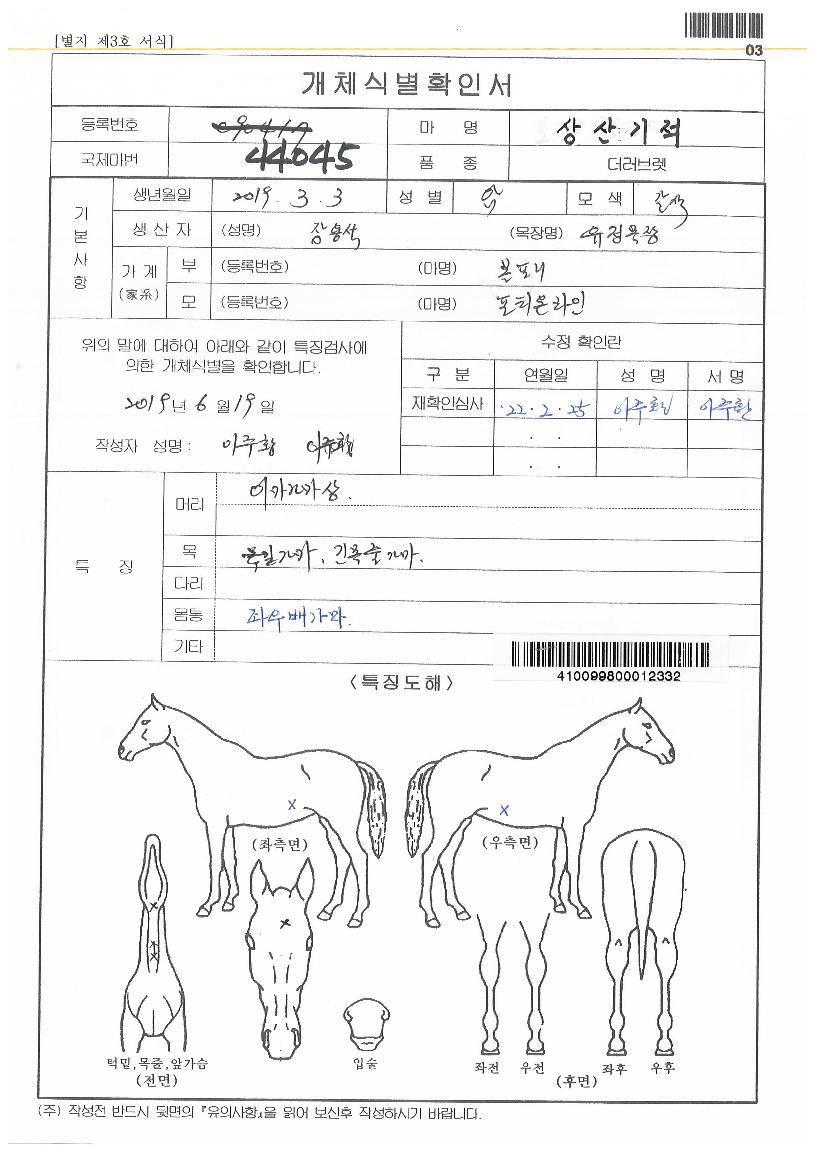 [별지 제3호 서식]
03
개체식별확인서
등록번호 090417 마 명 상산기적
국제마번 44045 품 종 더러브렛
기본사항
생년월일 2019. 3. 3 성 별 암 모 색 갈색
생 산 자 (성명) 장용석 (목장명) 유정목장
가 계 (家系) 부 (등록번호) (마명) 볼포니
모 (등록번호) (마명) 포티온라인
위의 말에 대하여 아래와 같이 특징검사에
의한 개체식별을 확인합니다.
2019년 6월 19일
작성자 성명 : 이주황
수정 확인란
구 분 연월일 성 명 서 명
재확인심사 '22. 2. 25
. .
. .
특 징
머리 이마가마상.
목 목일가마, 긴목줄가마.
다리
몸통 좌우배가마.
기타
410099800012332
<특징도해>
(좌측면) (우측면)
턱밑,목줄,앞가슴 (전면)
입술
좌전 우전 좌후 우후
(후면)
(주) 작성전 반드시 뒷면의 『유의사항』을 읽어 보신후 작성하시기 바랍니다.